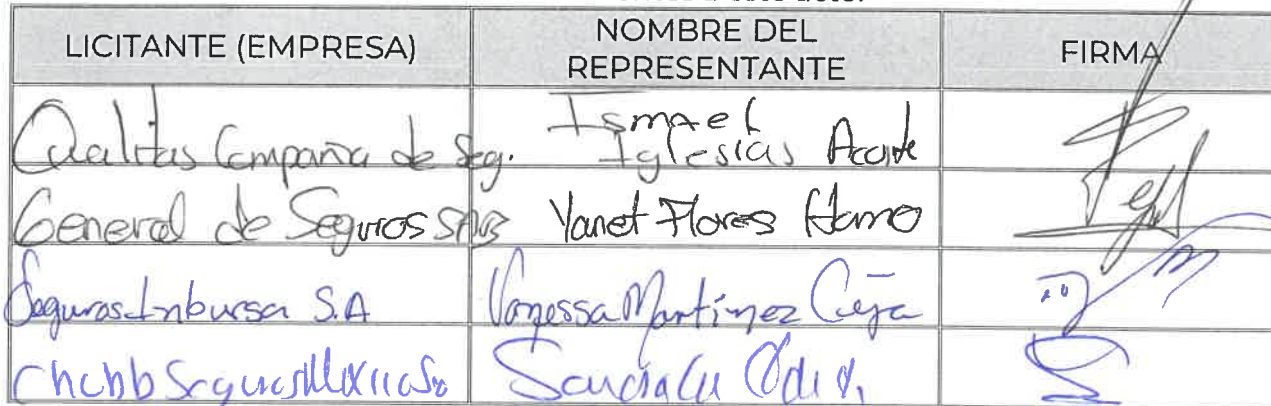 LICITANTE (EMPRESA) NOMBRE DEL REPRESENTANTE FIRMA
Qualitas Compañia de Seg. Ismael Iglesias
General de Seguros SAB Yanet Flores
Seguros Inbursa S.A Vanessa Martínez Ceja
Chubb Seguros México Sa